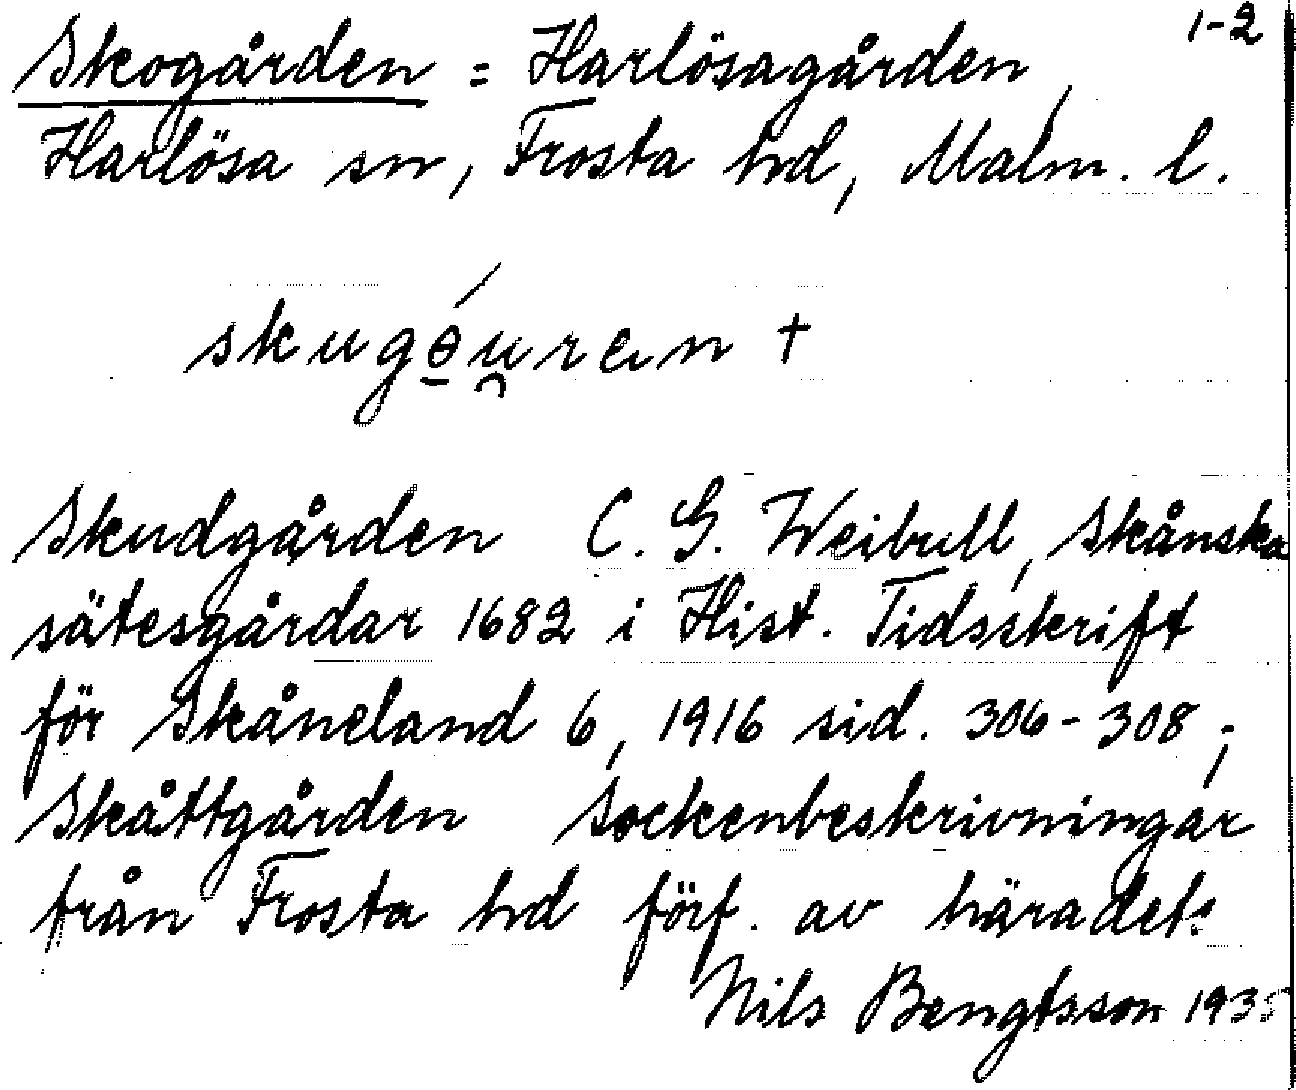 1-2
Skogården = Harlösagården,
Harlösa sn, Frosta hd, Malm. l.
skugə̱́u̯ren +
Skudgården C. G. Weibull, Skånska
sätesgårdar 1682 i Hist. Tidsskrift
för Skåneland 6, 1916 sid. 306-308;
Skåttgården Sockenbeskrivningar
från Frosta hd förf. av häradets
Nils Bengtsson 1935